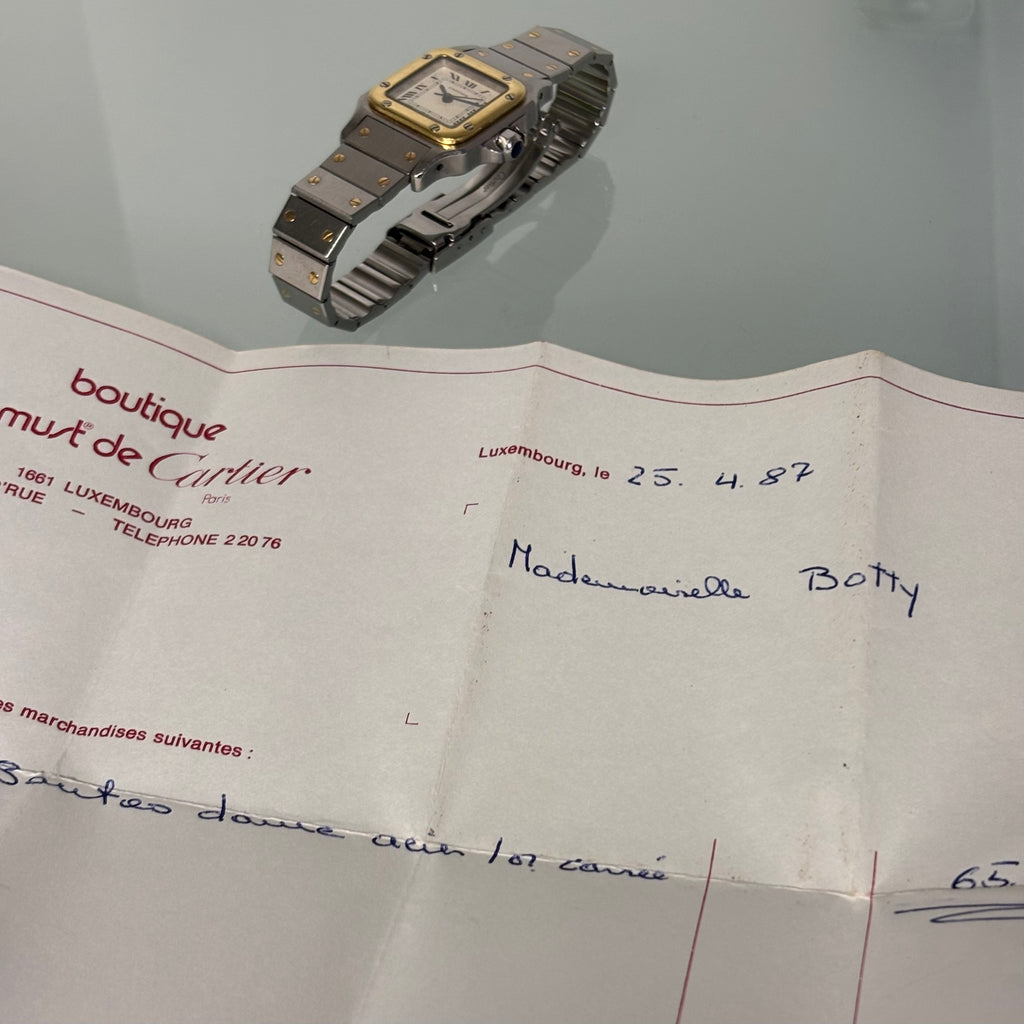 boutique
must® de Cartier
Paris
1661 LUXEMBOURG
'RUE — TELEPHONE 2 20 76
Luxembourg, le 25. 4. 87
Mademoiselle Botty
es marchandises suivantes :
Santos dame acier / or carrée 65.